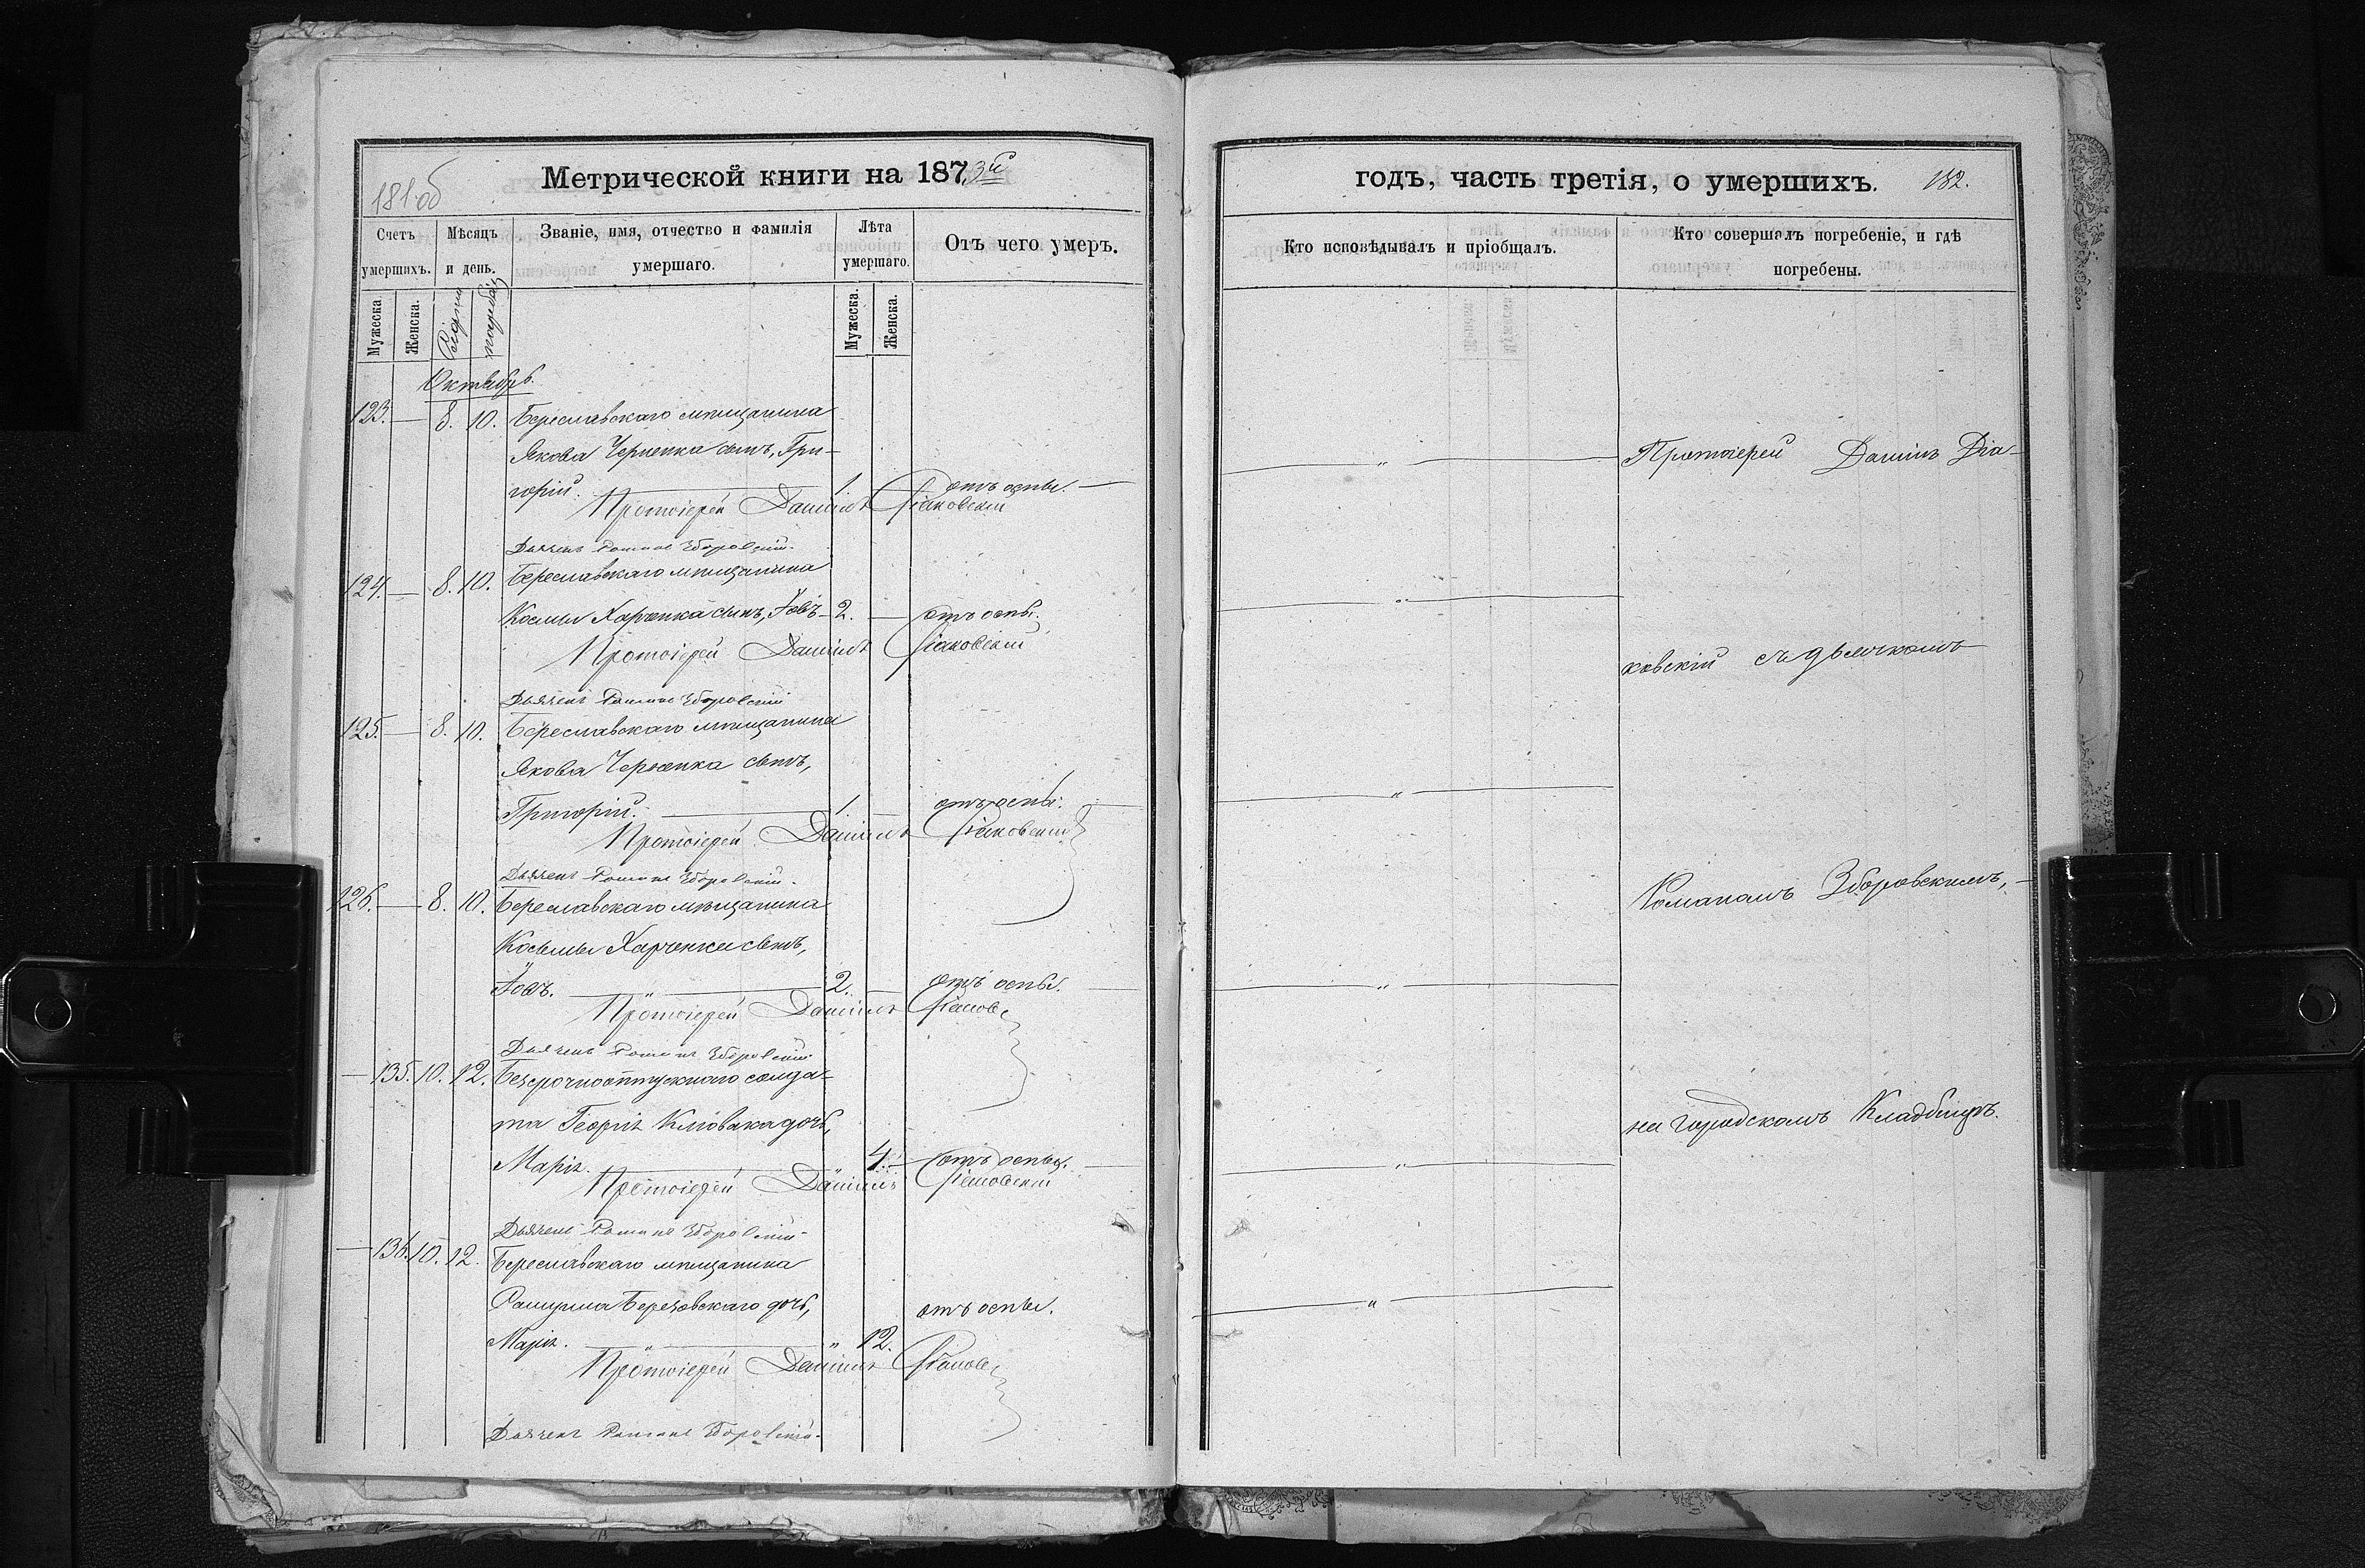 181 об
Метрической книги на 1873й
Счетъ умершихъ.
Мѣсяцъ и день.
Званіе, имя, отчество и фамилія умершаго.
Лѣта умершаго.
Отъ чего умеръ.
Мужеска.
Женска.
погреб.
Мужеска.
Женска.
Октябрь.
123. — 8. 10. Береславскаго мѣщанина
Якова Черненка сынъ, Гри-
горій. 1. отъ оспы.
Протоіерей Даніилъ Діаковскій
Дьячекъ Романъ Зборовскій.
124. — 8. 10. Береславскаго мѣщанина
Космы Харченка сынъ, Іовъ — 2. — отъ оспы.
Протоіерей Даніилъ Діаковскій
Дьячекъ Романъ Зборовскій
125. — 8. 10. Береславскаго мѣщанина
Якова Черненка сынъ,
Григорій. 1. отъ оспы.
Протоіерей Даніилъ Діаковскій
Дьячекъ Романъ Зборовскій.
126. — 8. 10. Береславскаго мѣщанина
Косьмы Харченка сынъ,
Іовъ. „ 2. — отъ оспы.
Протоіерей Даніилъ Діаков
Дьячекъ Романъ Зборовскій
— 135. 10. 12. Безсрочноотпускнаго солда-
та Георгія дочь,
Марія. „ 4. — отъ оспы.
Протоіерей Даніилъ Діаковскій
Дьячекъ Романъ Зборовскій
— 136. 10. 12. Береславскаго мѣщанина
Березовскаго дочь, отъ оспы.
Марія. „ „ 12.
Протоіерей Даніилъ Діаков
Дьячекъ Романъ Зборовскій.
годъ, часть третія, о умершихъ. 182.
Кто исповѣдывалъ и пріобщалъ.
Кто совершалъ погребеніе, и гдѣ погребены.
— „ — Протоіерей Даніилъ Діа-
— „ —
ковскій съ дьячкомъ
— „ —
Романомъ Зборовскимъ, —
— „ —
на городскомъ Кладбищѣ.
— „ —
— „ —